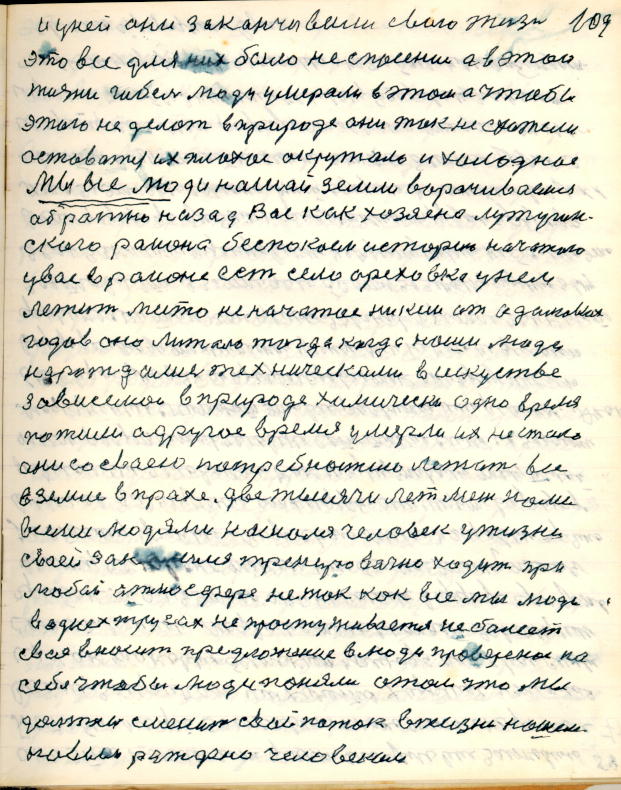 и уней они заканчывали свого жизн 109
это все для них было неспасении а в этой
жизни гибел люди умерали в этом а чтобы
этого не делат в природе они так не схотели
оставатця их плохое окружало и холодное
Мы все люди нашай земли ворачиваемся
абратно назад Вас как хозяено лутугин-
ского района беспокоем историю начатого
увас в районе ест село ореховка унем
лежит место не начатое никем от адамовых
годов оно литало тогда когда наши люди
нарождалис техническами в искустве
зависемой в природе химически одно время
пожили адругое время умерли их нестало
ани со сваею потребностию лежат все
в земле в прахе. две тысячи лет меж нами
всеми людями нашолся человек ужизни
своей закалился тренеровачно ходит при
любой атмосфере не так как все мы люди
в однех трусах не простуживается не балеет
своя вносит предложение в люди проверено на
себя чтобы люди поняли отом что мы
должны сменит свой поток в жизни нашем
новым раждено человеком